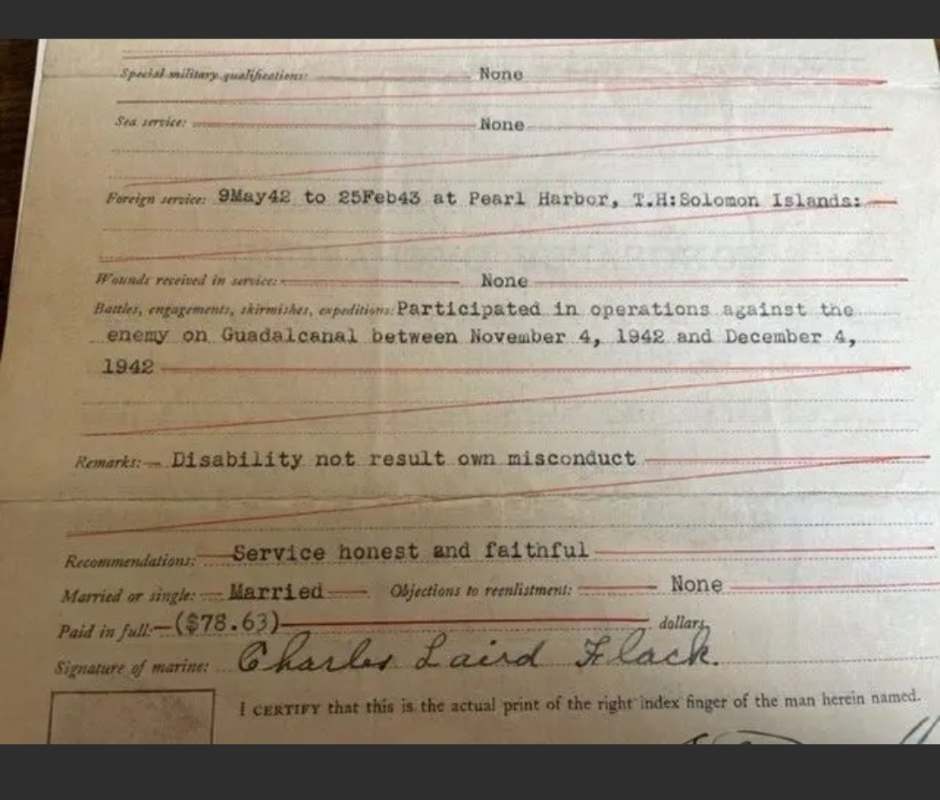 Special military qualifications: None
Sea service: None
Foreign service: 9May42 to 25Feb43 at Pearl Harbor, T.H:Solomon Islands:
Wounds received in service: None
Battles, engagements, skirmishes, expeditions: Participated in operations against the
enemy on Guadalcanal between November 4, 1942 and December 4,
1942
Remarks: Disability not result own misconduct
Recommendations: Service honest and faithful
Married or single: Married Objections to reenlistment: None
Paid in full: ($78.63) dollars,
Signature of marine: Charles Laird Flack.
I CERTIFY that this is the actual print of the right index finger of the man herein named.